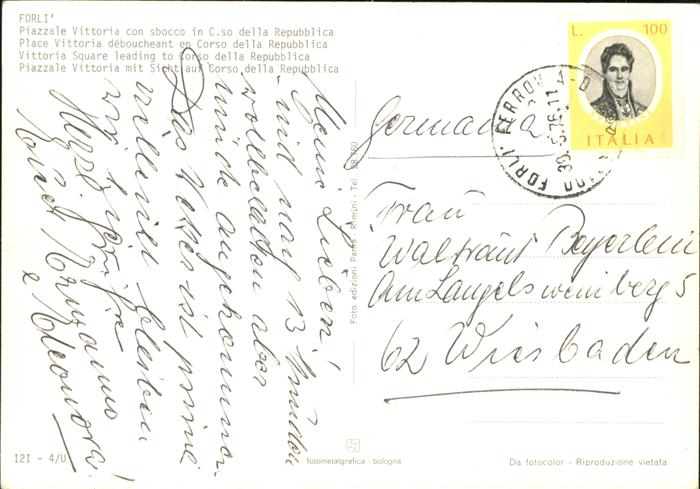 FORLI'
Piazzale Vittoria con sbocco in C.so della Repubblica
Place Vittoria déboucheant en Corso della Repubblica
Vittoria Square leading to Corso della Repubblica
Piazzale Vittoria mit Sicht auf Corso della Repubblica
Meine Lieben!
sind nach 13 Stunden
wohlbehalten aber
müde angekommen.
Das Wetter ist prima
bleiben
wir hier
Herzl. Grüße
Eure Ermanno
e Eleonora!
I2I - 4/U
Foto edizioni Parma - Rimini - Tel.
fotometalgrafica - bologna
L. 100
ITALIA
FORLI' FERROVIA
30.5.76.11
Germania
Frau
Waltraut Beyerlein
Am Langelsweinberg 5
62 Wiesbaden
Da fotocolor - Riproduzione vietata